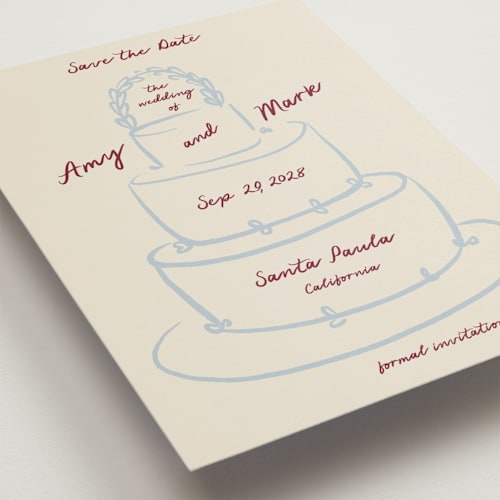 Save the Date
the
wedding
of
Amy and Mark
Sep 29, 2028
Santa Paula
California
formal invitation